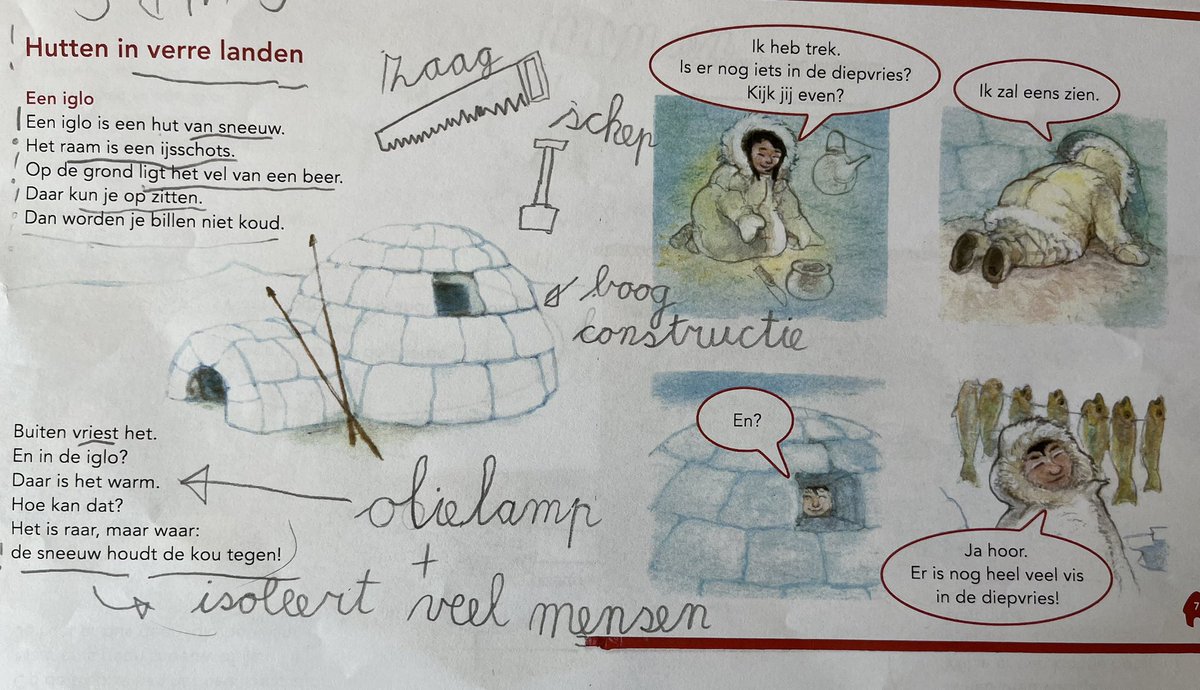 Hutten in verre landen
Een iglo
Een iglo is een hut van sneeuw.
Het raam is een ijsschots.
Op de grond ligt het vel van een beer.
Daar kun je op zitten.
Dan worden je billen niet koud.
zaag
schep
boog
constructie
Buiten vriest het.
En in de iglo?
Daar is het warm.
Hoe kan dat?
Het is raar, maar waar:
de sneeuw houdt de kou tegen!
olielamp
+
isoleert veel mensen
Ik heb trek.
Is er nog iets in de diepvries?
Kijk jij even?
Ik zal eens zien.
En?
Ja hoor.
Er is nog heel veel vis
in de diepvries!
7